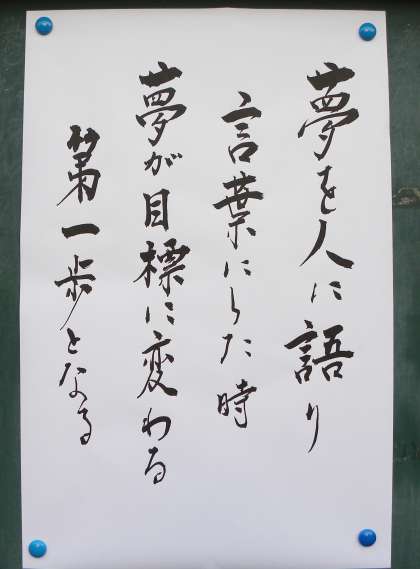 夢を人に語り
言葉にした時
夢が目標に変わる
第一歩となる